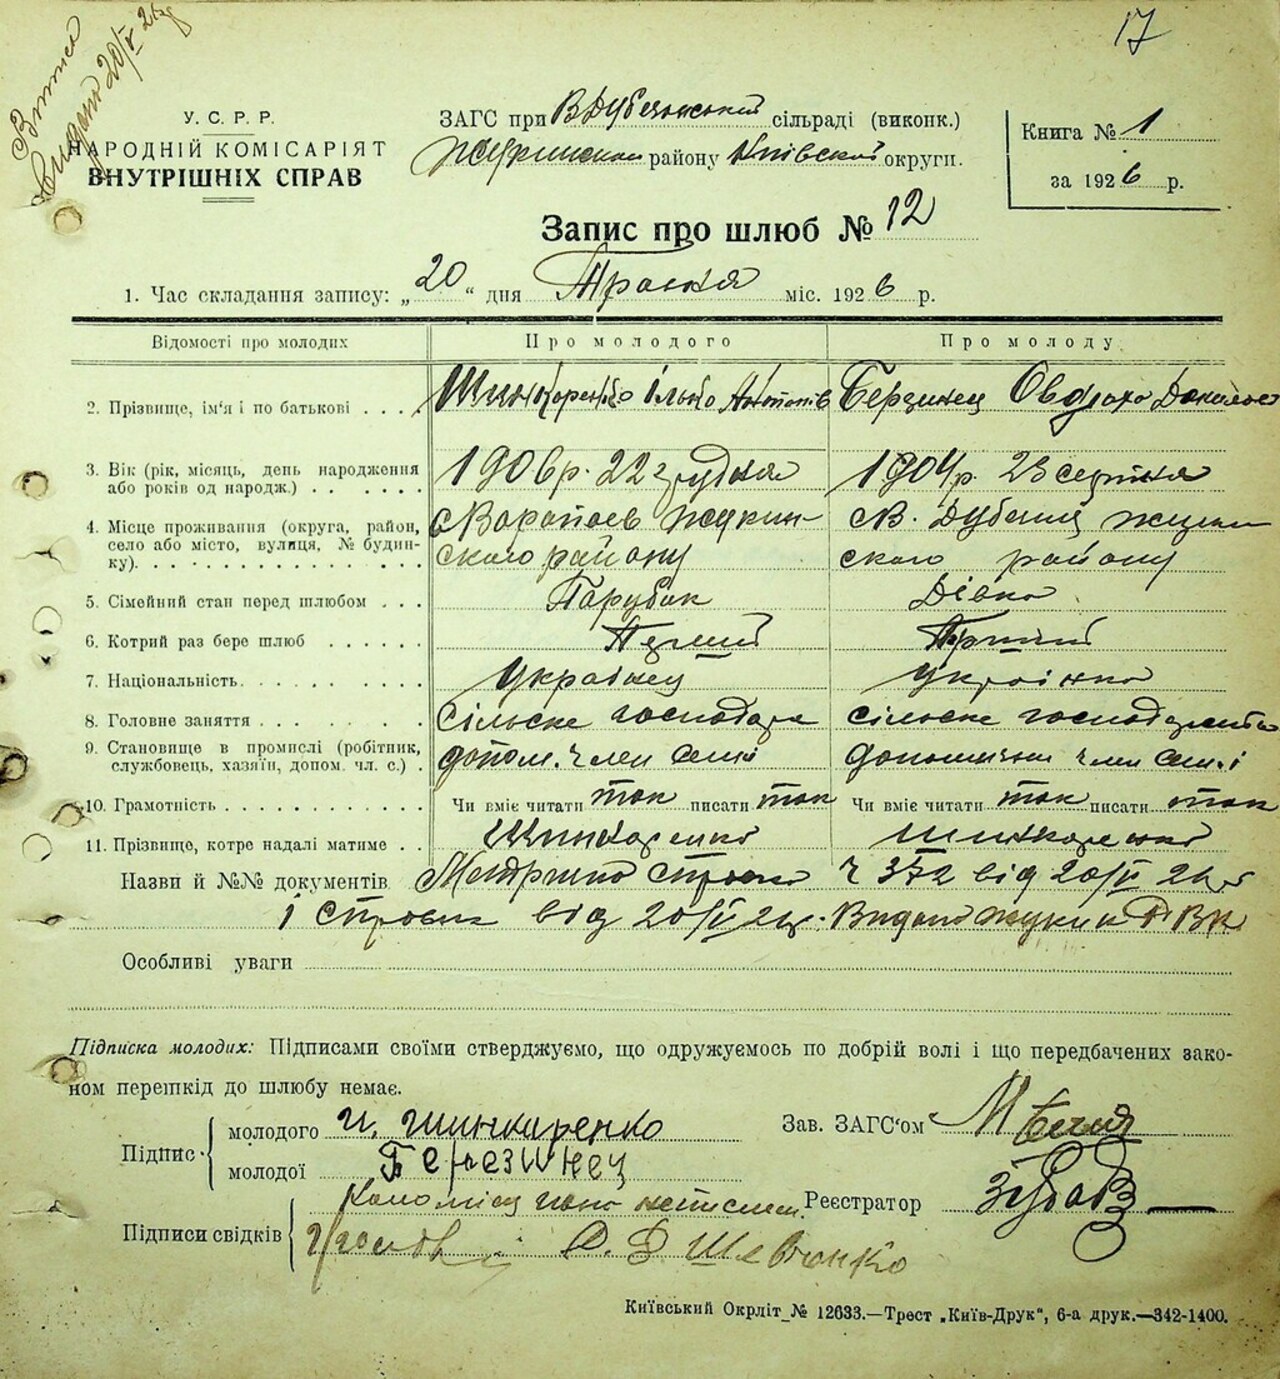 17
Витяг
видано 20/V 26 р
У. С. Р. Р.
НАРОДНІЙ КОМІСАРІЯТ
ВНУТРІШНІХ СПРАВ
ЗАГС при В Дубечанській сільраді (виконк.)
Жукинського району Київської округи.
Книга № 1
за 1926 р.
Запис про шлюб № 12
1. Час складання запису: „20“ дня Травня міс. 1926 р.
Відомості про молодих Про молодого Про молоду
2. Прізвище, ім‘я і по батькові . . . . Шинкаренко Ілько Антонів Березинец Овдоха
3. Вік (рік, місяць, день народження 1906 р. 22 грудня 1904 р. 23 серпня
або років од народж.) . . . . . .
4. Місце проживання (округа, район, с Воропаєв Жукин- с В. Дубечня Жукин
село або місто, вулиця, № будин- ського району ського району
ку). . . . . . . . . . . . . . .
5. Сімейний стан перед шлюбом . . . Парубак Дівка
6. Котрий раз бере шлюб . . . . . . Перший Перший
7. Національність. . . . . . . . . . Українец Українка
8. Головне заняття . . . . . . . . . Сільске господарс сільске господарство
9. Становище в промислі (робітник, допом. член семї допоміжни член семї
службовець, хазяїн, допом. чл. с.) .
10. Грамотність . . . . . . . . . . . Чи вміє читати так писати так Чи вміє читати так писати так
11. Прізвище, котре надалі матиме . . Шинкаренко Шинкаренко
Назви й №№ документів Метрична справка ч 372 від 20/V 26 р
і справка від 20/V 26 р. Видано Жукин РВК
Особливі уваги
Підписка молодих: Підписами своїми стверджуємо, що одружуємось по добрій волі і що передбачених зако-
ном перешкід до шлюбу немає.
Підпис молодого И. Шинкаренко Зав. ЗАГС‘ом
молодої Березинец
Підписи свідків Реєстратор
Шевченко
Київський Окрліт_№ 12633.—Трест „Київ-Друк“, 6-а друк.—342-1400.